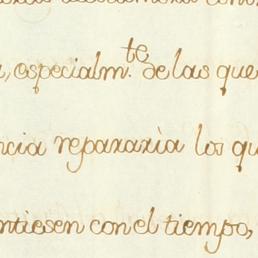 , especialm.te de las que
ncia repararìa los qu
ntiesen con el tiempo,